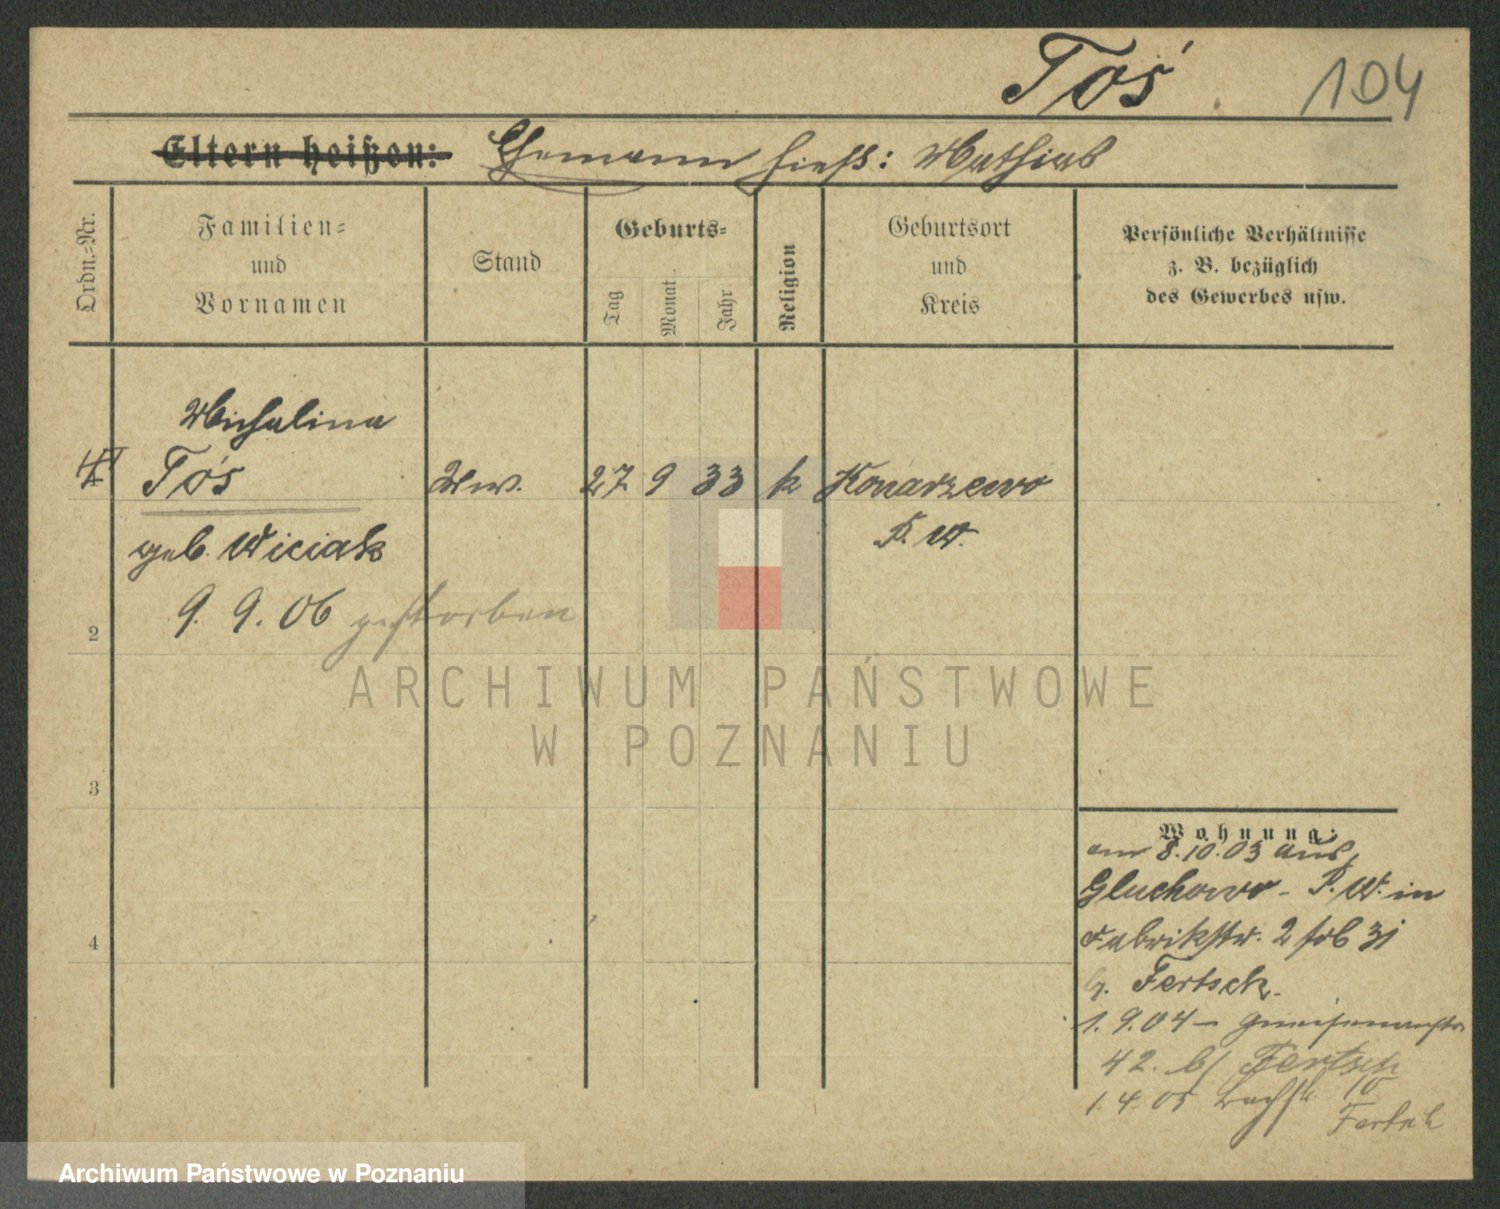 Toś. 104
Eltern heißen: Ehemann hieß: Mathias
Ordn.=Nr.
Familien=
und
Vornamen
Stand
Geburts=
Tag
Monat
Jahr
Religion
Geburtsort
und
Kreis
Persönliche Verhältnisse
z. B. bezüglich
des Gewerbes usw.
Michalina
Toś Ww. 27 9 33 k Konarzewo
geb. Wiciak P. W.
9. 9. 06 gestorben
2
3
4
Wohnung:
am 8.10.03 aus
Gluchowo - P. W. in
Fabrikstr. 2 31
b. Fertsch.
1. 9. 04 - Gneisenaustr
42. b/ Fertsch
1. 4. 05 10
ARCHIWUM PAŃSTWOWE
W POZNANIU
Archiwum Państwowe w Poznaniu